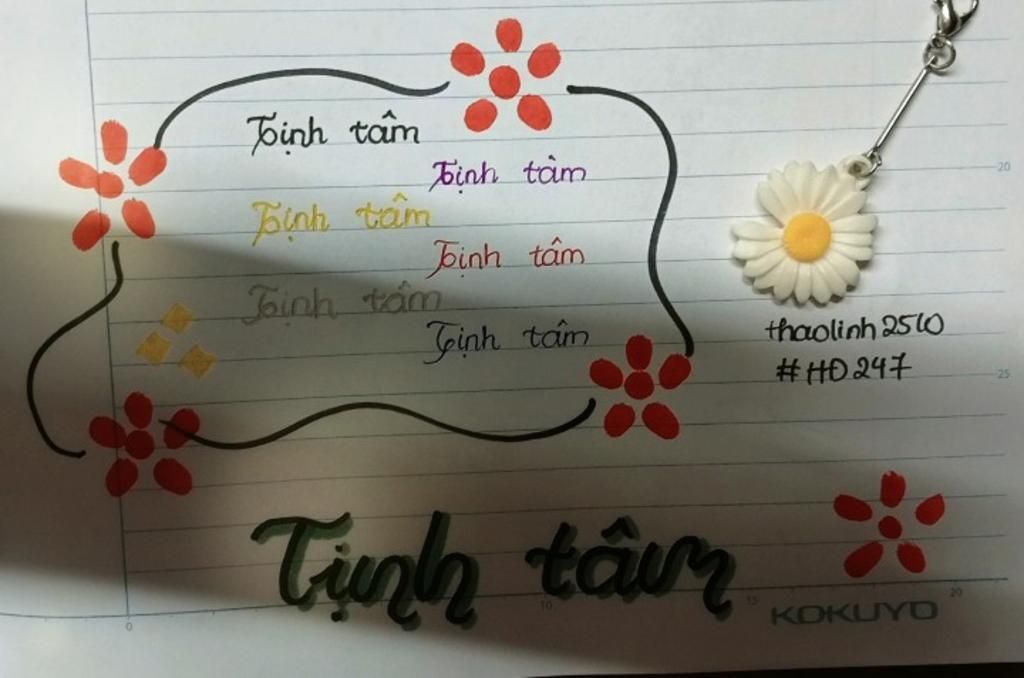 Tịnh tâm
Tịnh tâm
Tịnh tâm
Tịnh tâm
Tịnh tâm
Tịnh tâm
thaolinh2510
#HD247
Tịnh tâm
KOKUYO
20
25
0
10
15
20